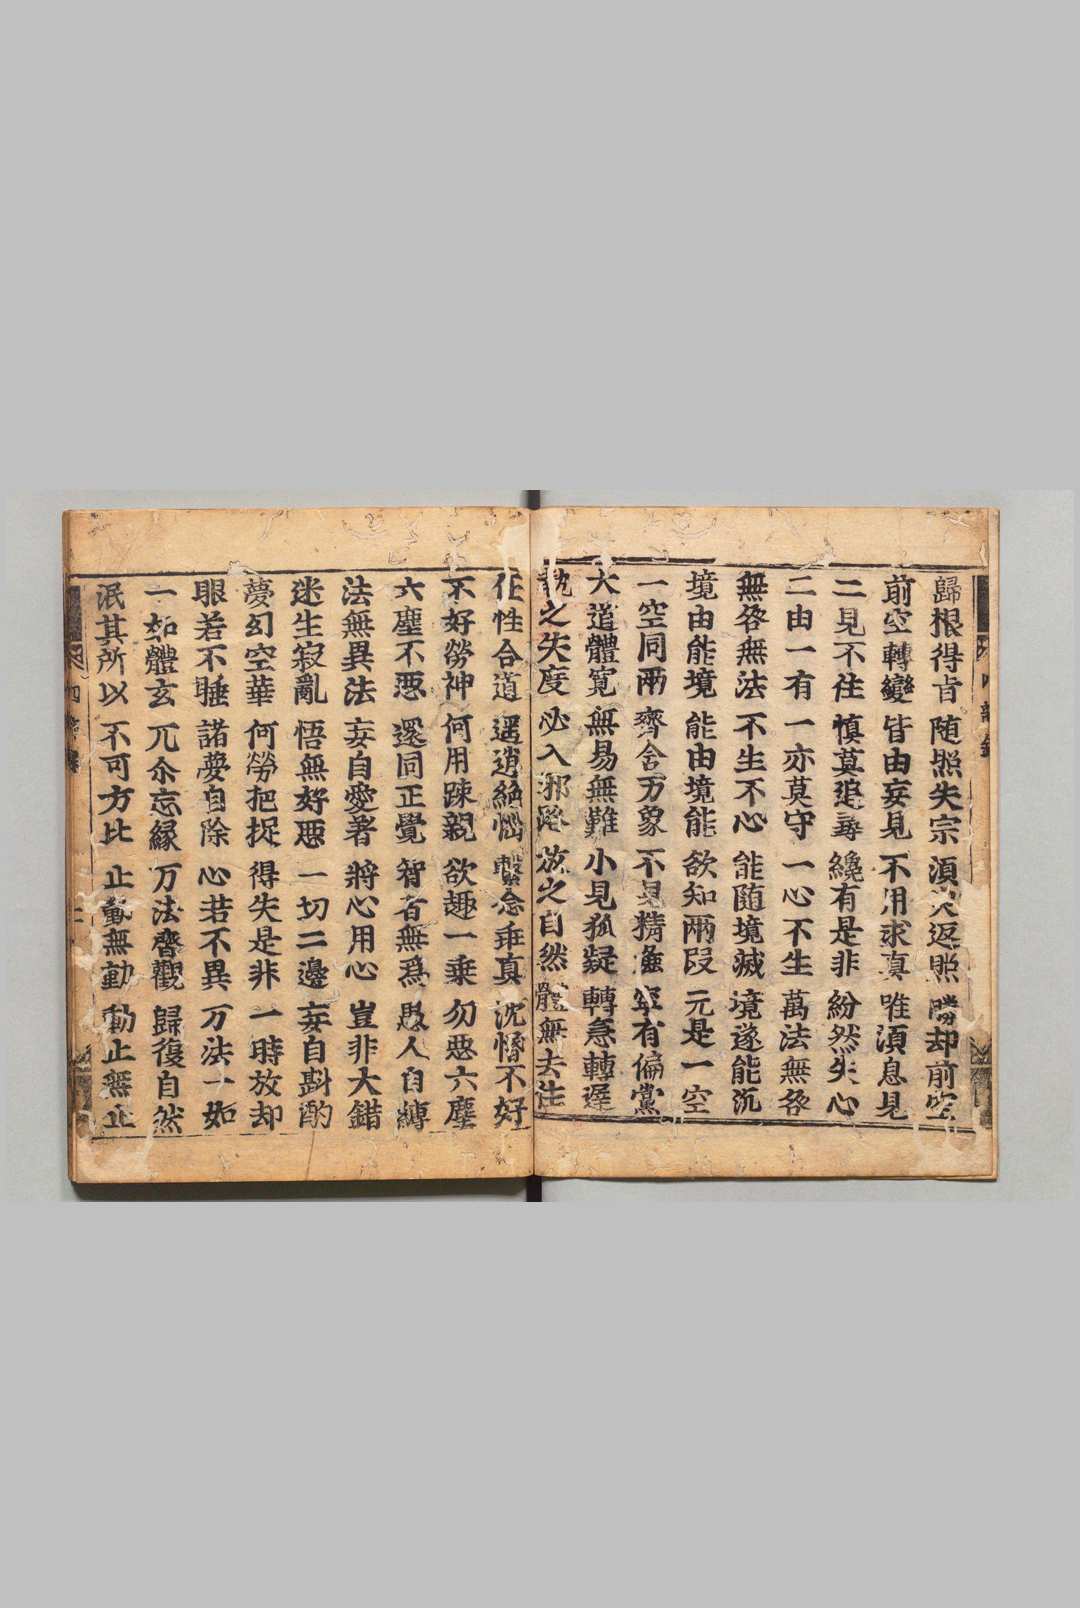 歸根得旨 随照失宗 湏臾返照 勝却前空
前空轉變 皆由妄見 不用求真 唯湏息見
二見不住 慎莫追尋 纔有是非 紛然失心
二由一有 一亦莫守 一心不生 萬法無咎
無咎無法 不生不心 能随境滅 境逐能沉
境由能境 能由境能 欲知兩段 元是一空
一空同兩 齊含万象 不見精麁 寧有偏黨
大道體寬 無易無難 小見狐疑 轉急轉遲
執之失度 必入邪路 放之自然 體無去住
任性合道 逍遥絶惱 繫念乖真 沈惛不好
不好勞神 何用踈親 欲趣一乗 勿惡六塵
六塵不惡 還同正覺 智者無爲 愚人自縛
法無異法 妄自愛著 將心用心 豈非大錯
迷生寂亂 悟無好惡 一切二邊 妄自斟酌
夢幻空華 何勞把捉 得失是非 一時放却
眼若不睡 諸夢自除 心若不異 万法一如
一如體玄 兀尒忘縁 万法齊觀 歸復自然
泯其所以 不可方比 止動無動 動止無止